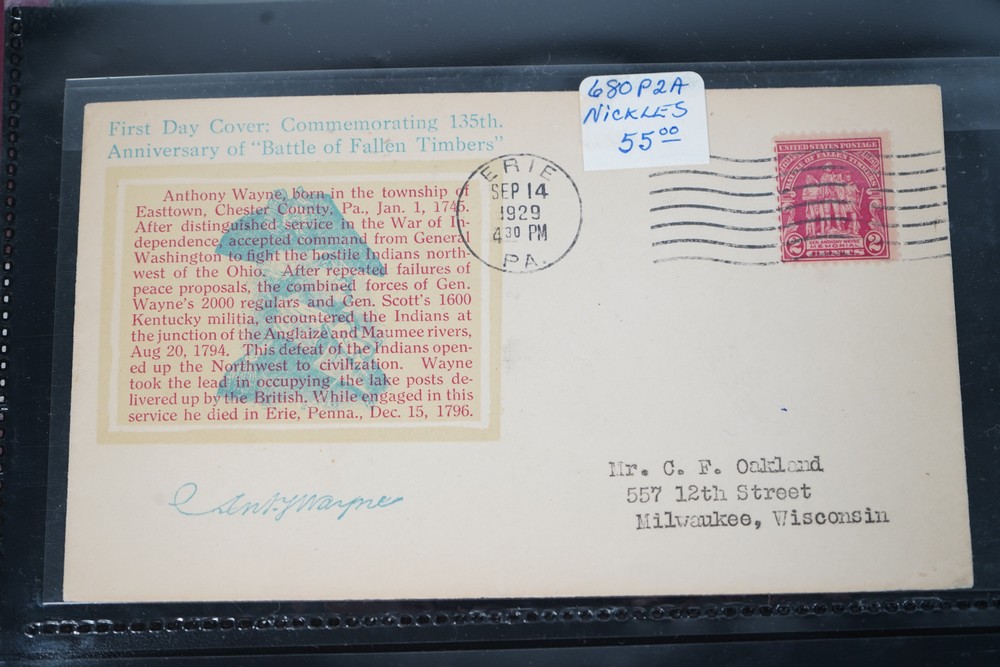 680P2A
NICKLES
55.00
First Day Cover: Commemorating 135th.
Anniversary of "Battle of Fallen Timbers"
Anthony Wayne, born in the township of
Easttown, Chester County, Pa., Jan. 1, 1745.
After distinguished service in the War of In-
dependence accepted command from General
Washington to fight the hostile Indians north-
west of the Ohio. After repeated failures of
peace proposals, the combined forces of Gen.
Wayne's 2000 regulars and Gen. Scott's 1600
Kentucky militia, encountered the Indians at
the junction of the Anglaize and Maumee rivers,
Aug 20, 1794. This defeat of the Indians open-
ed up the Northwest to civilization. Wayne
took the lead in occupying the lake posts de-
livered up by the British. While engaged in this
service he died in Erie, Penna., Dec. 15, 1796.
Ant.y Wayne
ERIE
SEP 14
1929
4 30 PM
PA.
UNITED STATES POSTAGE
BATTLE OF FALLEN TIMBERS
GEN. ANTHONY WAYNE
MEMORIAL
2 2
CENTS
Mr. C. F. Oakland
557 12th Street
Milwaukee, Wisconsin